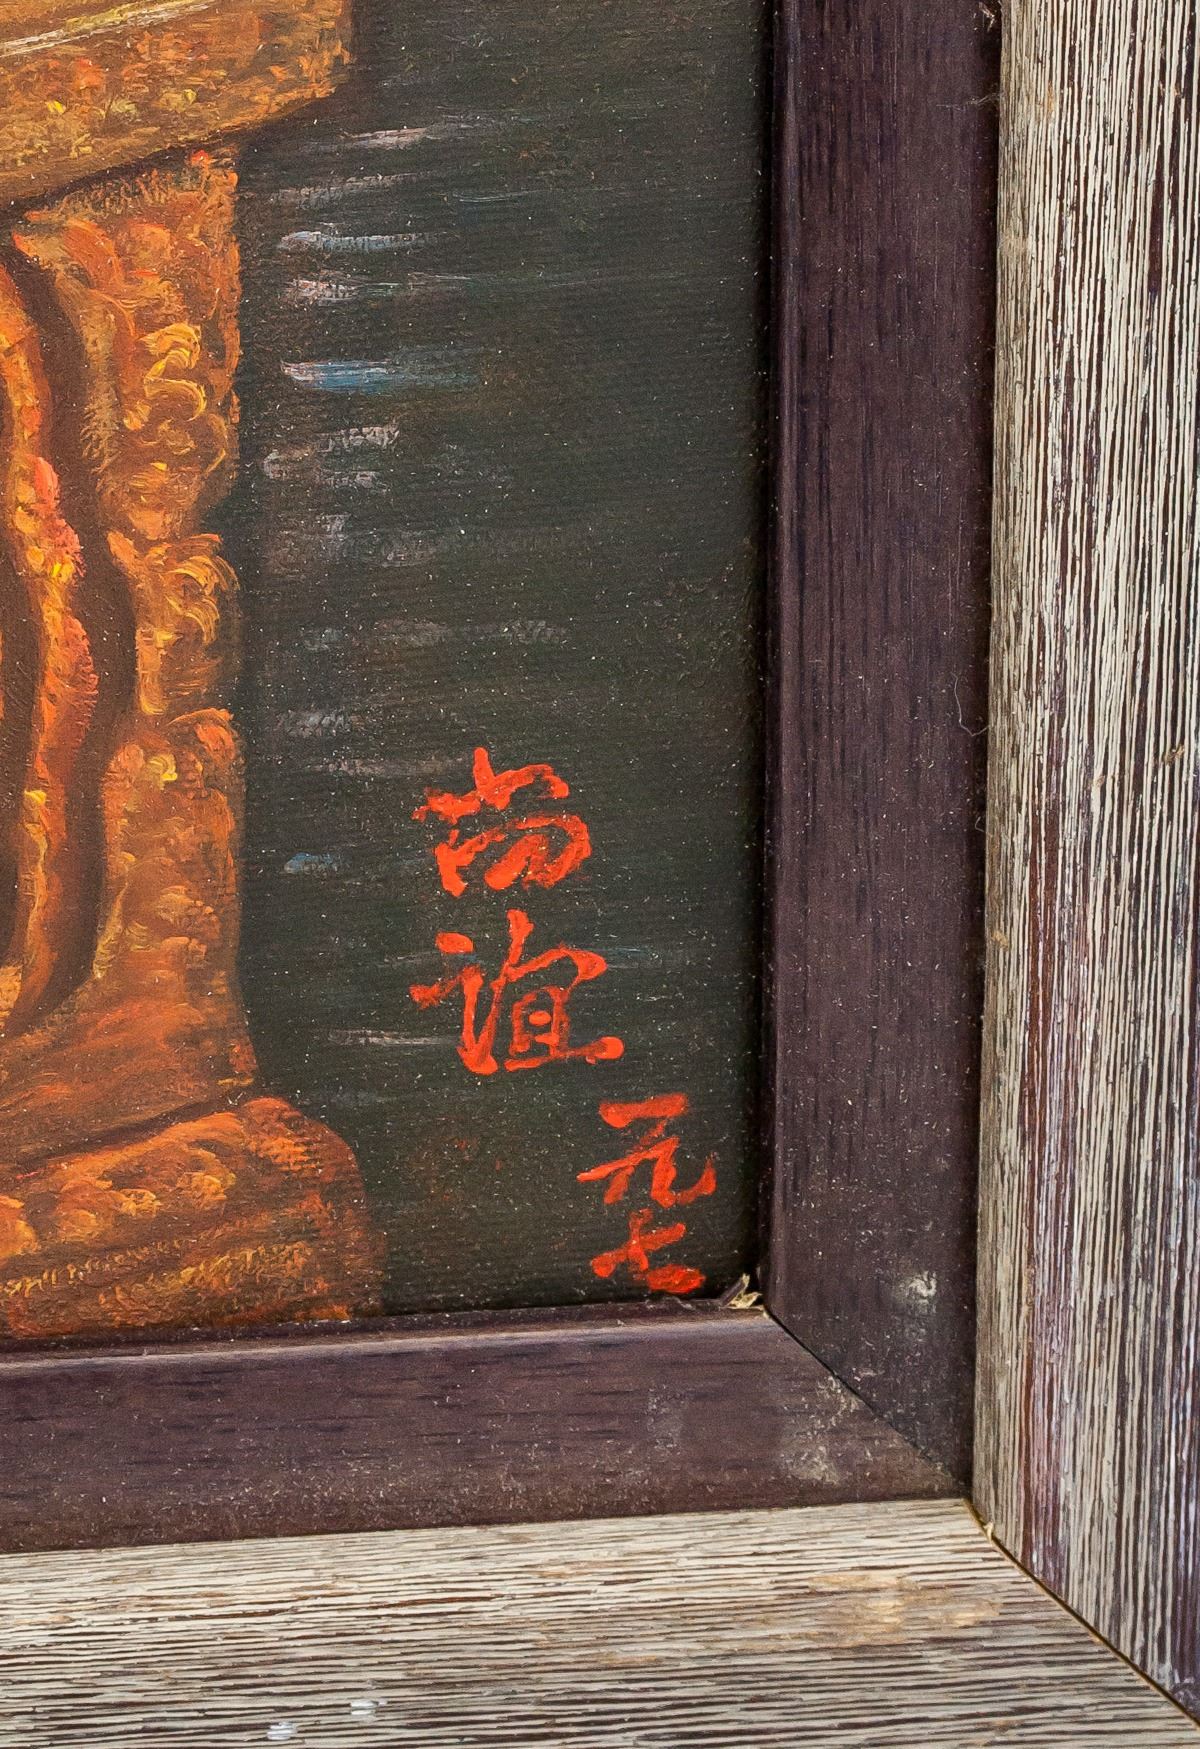 尚谊
元七